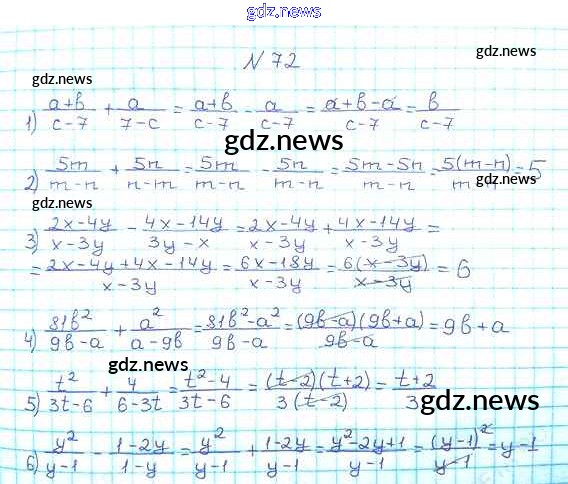 gdz.news
N 72
gdz.news
gdz.news
1) (a+b)/(c-7) + a/(7-c) = (a+b)/(c-7) - a/(c-7) = (a+b-a)/(c-7) = b/(c-7)
gdz.news
2) 5m/(m-n) + 5n/(n-m) = 5m/(m-n) - 5n/(m-n) = (5m-5n)/(m-n) = 5(m-n)/(m-n) = 5
gdz.news
gdz.news
3) (2x-4y)/(x-3y) - (4x-14y)/(3y-x) = (2x-4y)/(x-3y) + (4x-14y)/(x-3y) =
= (2x-4y+4x-14y)/(x-3y) = (6x-18y)/(x-3y) = 6(x-3y)/(x-3y) = 6
4) 81b²/(9b-a) + a²/(a-9b) = (81b²-a²)/(9b-a) = (9b-a)(9b+a)/(9b-a) = 9b+a
gdz.news
5) t²/(3t-6) + 4/(6-3t) = (t²-4)/(3t-6) = (t-2)(t+2)/3(t-2) = (t+2)/3
gdz.news
6) y²/(y-1) - (1-2y)/(1-y) = y²/(y-1) + (1-2y)/(y-1) = (y²-2y+1)/(y-1) = (y-1)²/(y-1) = y-1
gdz.news